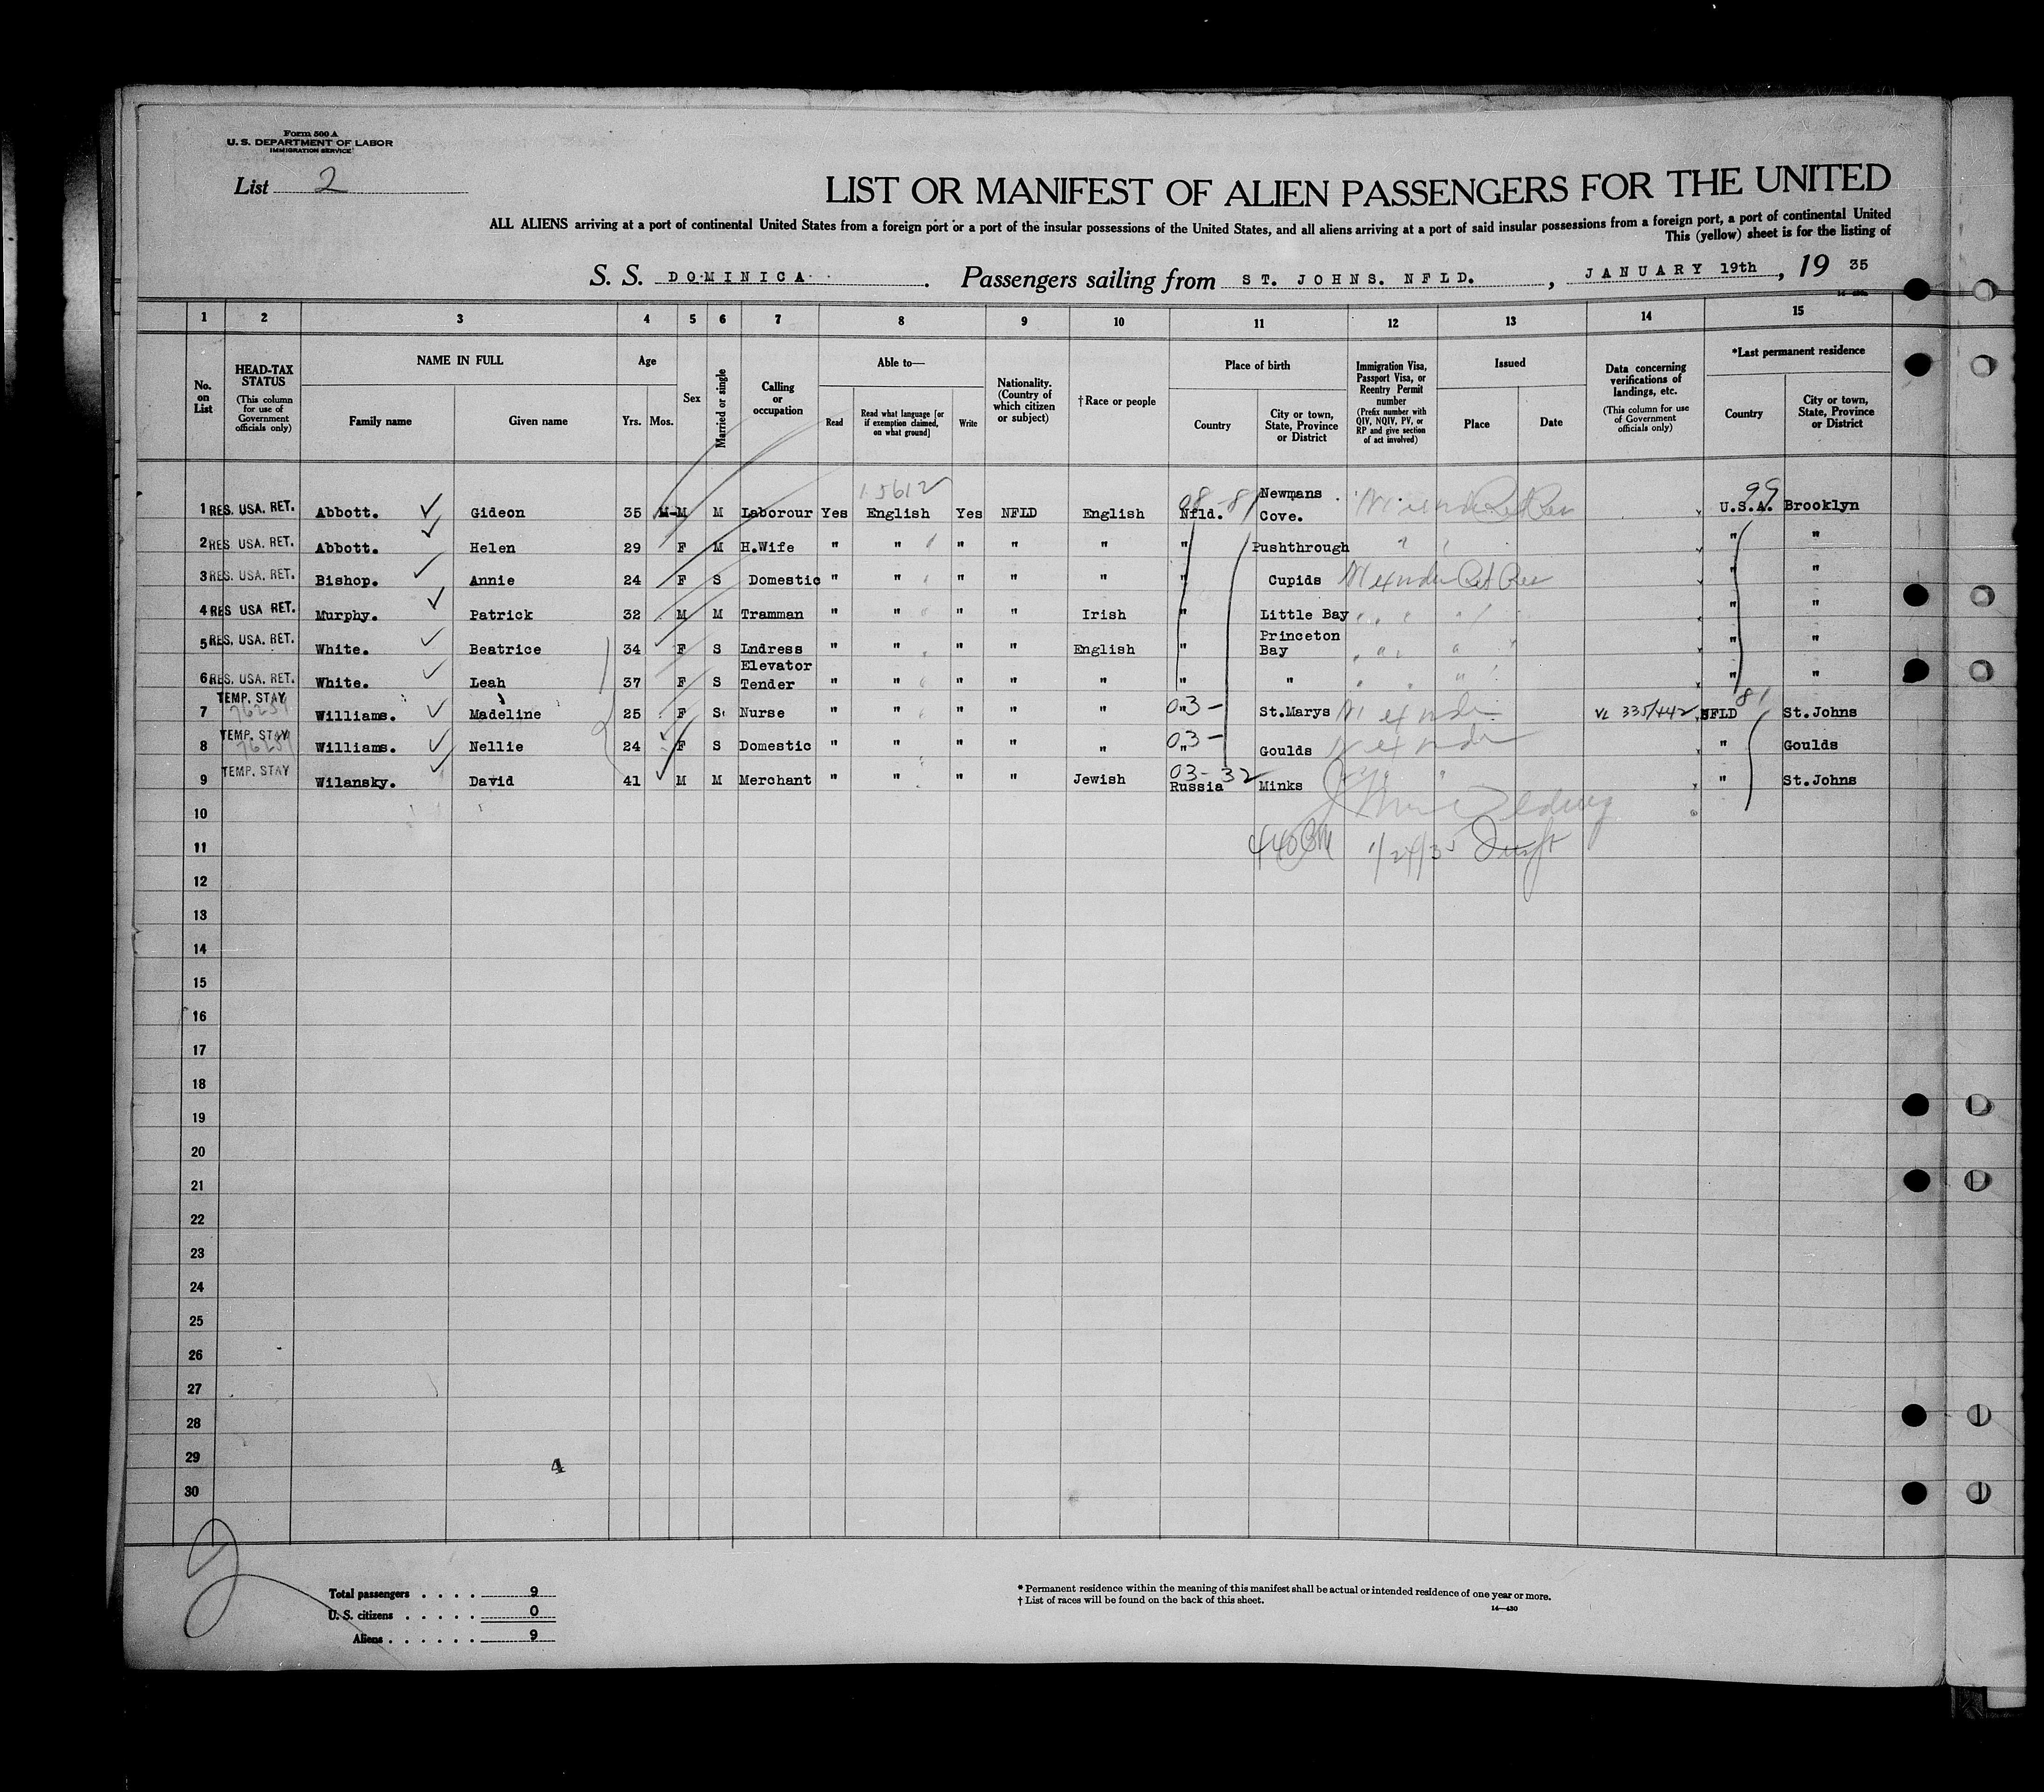 Form 500 A
U. S. DEPARTMENT OF LABOR
IMMIGRATION SERVICE
List 2
LIST OR MANIFEST OF ALIEN PASSENGERS FOR THE UNITED
ALL ALIENS arriving at a port of continental United States from a foreign port or a port of the insular possessions of the United States, and all aliens arriving at a port of said insular possessions from a foreign port, a port of continental United
This (yellow) sheet is for the listing of
S. S. DOMINICA. Passengers sailing from ST. JOHNS. NFLD., JANUARY 19th, 19 35
1 2 3 4 5 6 7 8 9 10 11 12 13 14 15
No. on List
HEAD-TAX STATUS (This column for use of Government officials only)
NAME IN FULL
Family name Given name
Age
Yrs. Mos.
Sex
Married or single
Calling or occupation
Able to—
Read Read what language [or if exemption claimed, on what ground] Write
Nationality. (Country of which citizen or subject)
†Race or people
Place of birth
Country City or town, State, Province or District
Immigration Visa, Passport Visa, or Reentry Permit number (Prefix number with QIV, NQIV, PV, or RP and give section of act involved)
Issued
Place Date
Data concerning verifications of landings, etc. (This column for use of Government officials only)
*Last permanent residence
Country City or town, State, Province or District
15612
1 RES. USA. RET. Abbott. Gideon 35 M-M M Laborour Yes English Yes NFLD English Nfld. Newmans Cove. U.S.A. 99 Brooklyn
2 RES. USA. RET. Abbott. Helen 29 F M H.Wife " " " " " " Pushthrough " "
3 RES. USA. RET. Bishop. Annie 24 F S Domestic " " " " " " Cupids " "
4 RES USA RET. Murphy. Patrick 32 M M Tramman " " " " Irish " Little Bay " "
5 RES. USA. RET. White. Beatrice 34 F S Lndress " " " " English " Princeton Bay " "
6 RES. USA. RET. White. Leah 37 F S Elevator Tender " " " " " " " " "
7 TEMP. STAY Williams. Madeline 25 F S Nurse " " " " " 03- " St.Marys VL 335/442 NFLD 81 St.Johns
8 TEMP. STAY Williams. Nellie 24 F S Domestic " " " " " 03- " Goulds " Goulds
9 TEMP. STAY Wilansky. David 41 M M Merchant " " " " Jewish 03-32 Russia Minks " St.Johns
10
11 1/24/35
12
13
14
15
16
17
18
19
20
21
22
23
24
25
26
27
28
29 4
30
Total passengers . . . . 9
U. S. citizens . . . . . 0
Aliens . . . . . . 9
* Permanent residence within the meaning of this manifest shall be actual or intended residence of one year or more.
† List of races will be found on the back of this sheet.
14—430